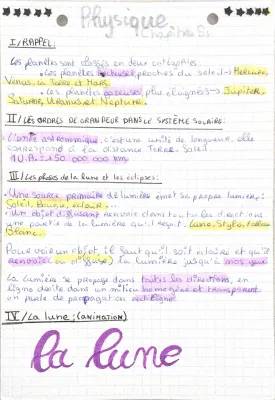 Physique
Chapitre
I/RAPPEL:
Les planètes sont classés en deux catégories.
• Les planètes rocheuses, proches du soleil → Mercure,
Venus, la Terre et Mars.
• Les planètes gazeuses, plus éloignées → Jupiter,
Saturne, Uranus et Neptune.
II/LES ORDRES DE GRANDEUR DANS LE SYSTÈME SOLAIRE:
L'unité astronomique, c'est une unité de longueur, elle
correspond à la distance Terre. Soleil.
1U.A = 150 000 000 km
III/Les phases de la lune et les éclipses:
• Une source primaire de lumière émet sa propre lumière:
Soleil, Bougie, éclair...
• Un objet diffusant renvoie dans toutes les directions
une partie de la lumière qu'il reçoit. Lune, Stylo, tableau
Blanc.
Pour voir un objet, il faut qu'il soit éclairé et qu'il
renvoie (ou diffuse) la lumière jusqu'à nos yeux
La lumière se propage dans toutes les directions, en
ligne droite dans un milieu homogène et transparent
on parle de propagation rectiligne.
IV/La lune: (ANIMATION)
la lune